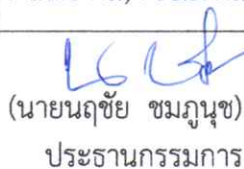 (นายนฤชัย ชมภูนุช)
ประธานกรรมการ